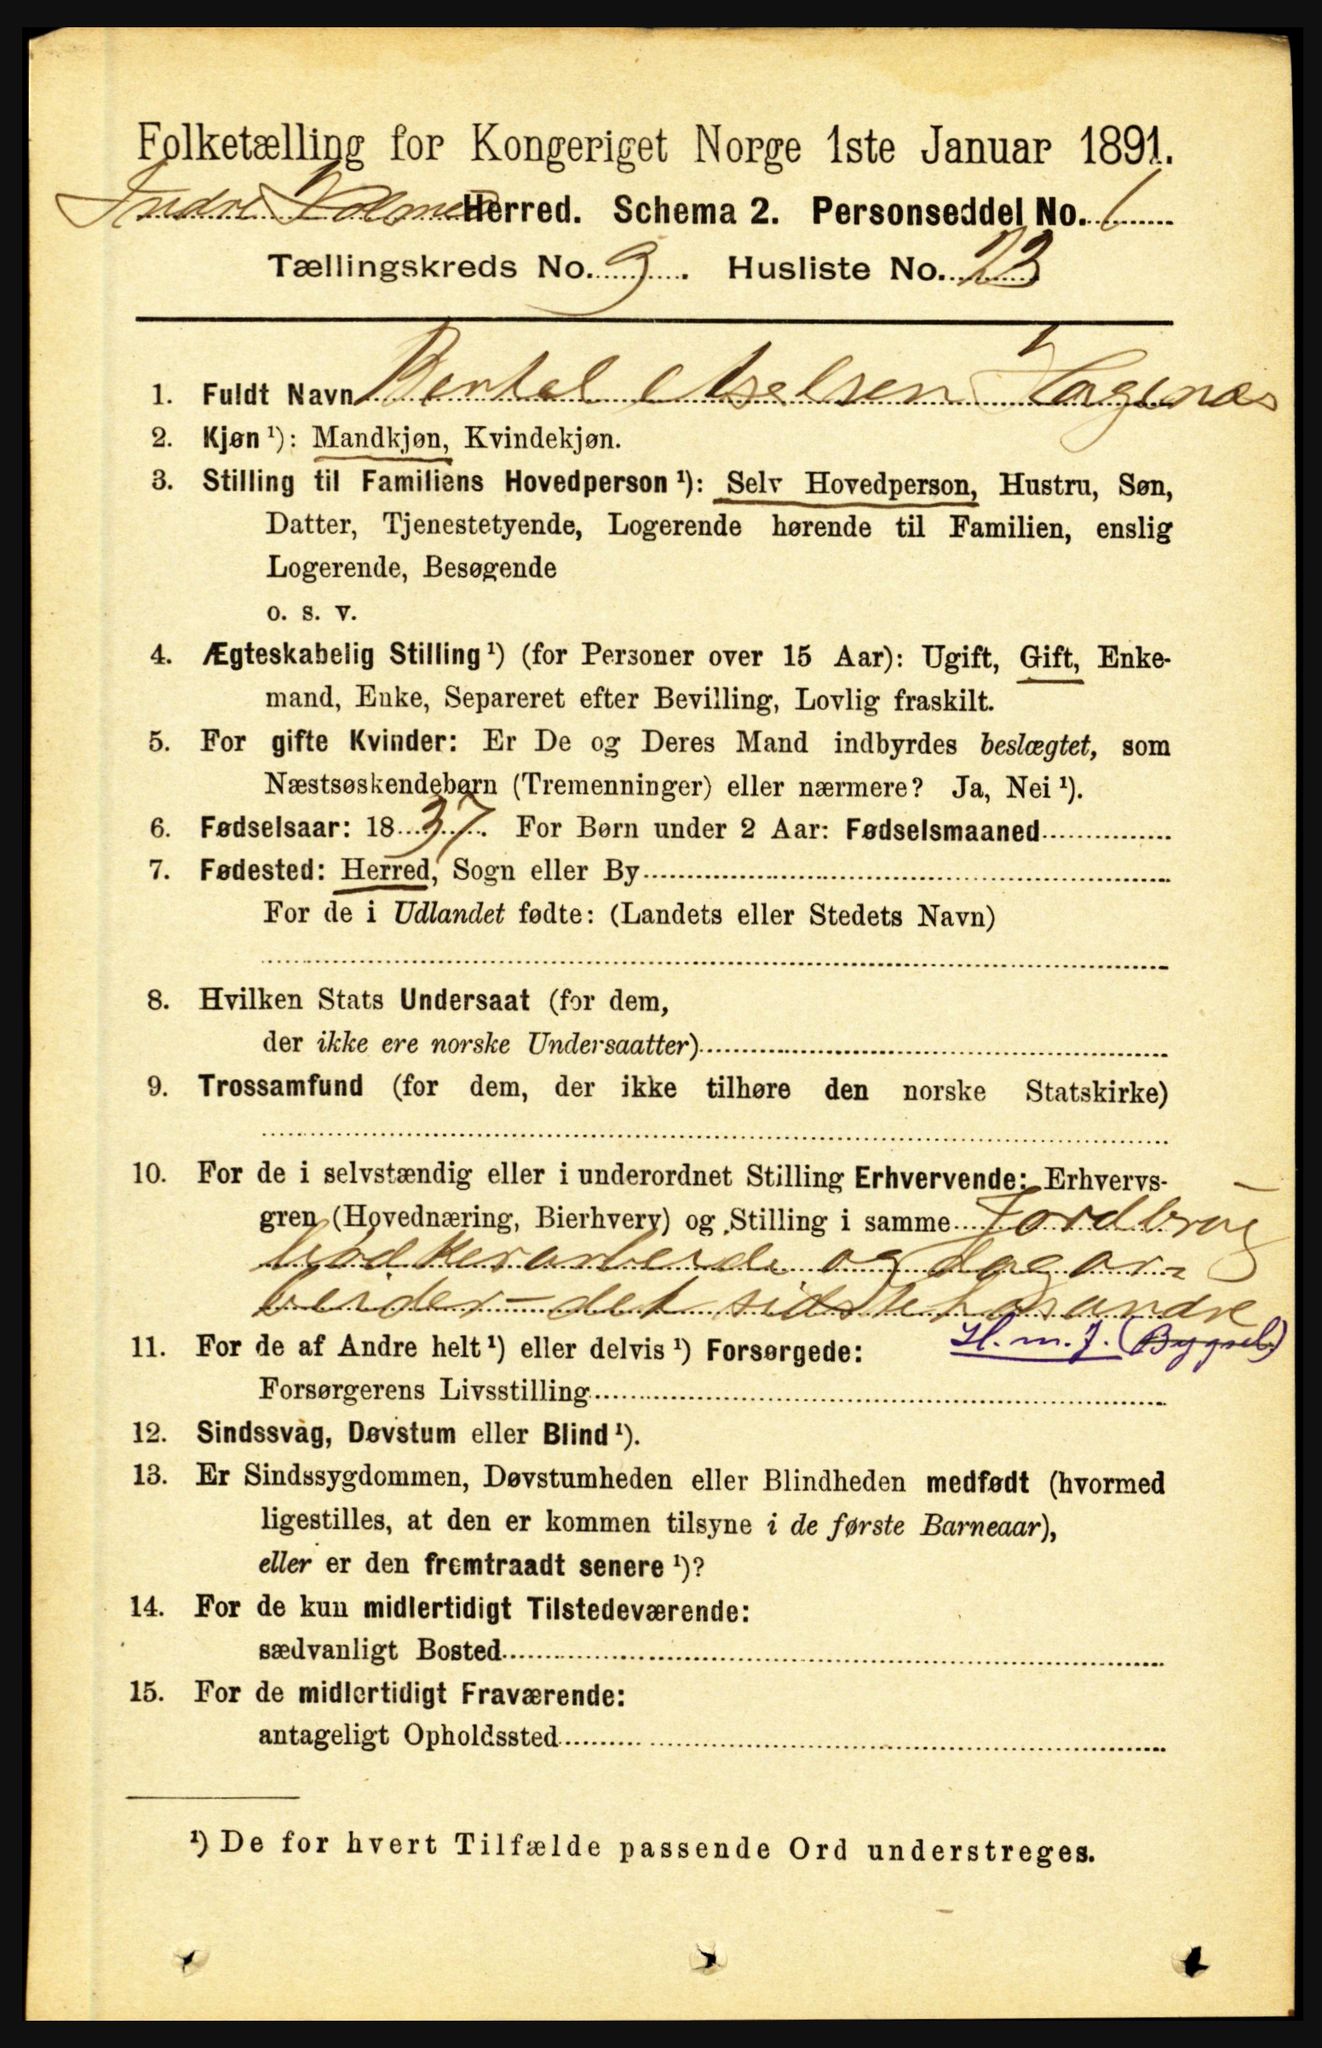 Folketælling for Kongeriget Norge 1ste Januar 1891.
Indre Holmedal Herred. Schema 2. Personseddel No. 1
Tællingskreds No. 9. Husliste No. 23
1. Fuldt Navn Bertel Axelsen Hagenæs
2. Kjøn ¹): Mandkjøn, Kvindekjøn.
3. Stilling til Familiens Hovedperson ¹): Selv Hovedperson, Hustru, Søn,
Datter, Tjenestetyende, Logerende hørende til Familien, enslig
Logerende, Besøgende
o. s. v.
4. Ægteskabelig Stilling ¹) (for Personer over 15 Aar): Ugift, Gift, Enke-
mand, Enke, Separeret efter Bevilling, Lovlig fraskilt.
5. For gifte Kvinder: Er De og Deres Mand indbyrdes beslægtet, som
Næstsøskendebørn (Tremenninger) eller nærmere? Ja, Nei ¹).
6. Fødselsaar: 1837. For Børn under 2 Aar: Fødselsmaaned
7. Fødested: Herred, Sogn eller By
For de i Udlandet fødte: (Landets eller Stedets Navn)
8. Hvilken Stats Undersaat (for dem,
der ikke ere norske Undersaatter)
9. Trossamfund (for dem, der ikke tilhøre den norske Statskirke)
10. For de i selvstændig eller i underordnet Stilling Erhvervende: Erhvervs-
gren (Hovednæring, Bierhverv) og Stilling i samme Jordbrug
og dagar-
beider - det sidste hos andre
11. For de af Andre helt ¹) eller delvis ¹) Forsørgede: H.m.J. (Bygsel)
Forsørgerens Livsstilling
12. Sindssvag, Døvstum eller Blind ¹).
13. Er Sindssygdommen, Døvstumheden eller Blindheden medfødt (hvormed
ligestilles, at den er kommen tilsyne i de første Barneaar),
eller er den fremtraadt senere ¹)?
14. For de kun midlertidigt Tilstedeværende:
sædvanligt Bosted
15. For de midlertidigt Fraværende:
antageligt Opholdssted
¹) De for hvert Tilfælde passende Ord understreges.